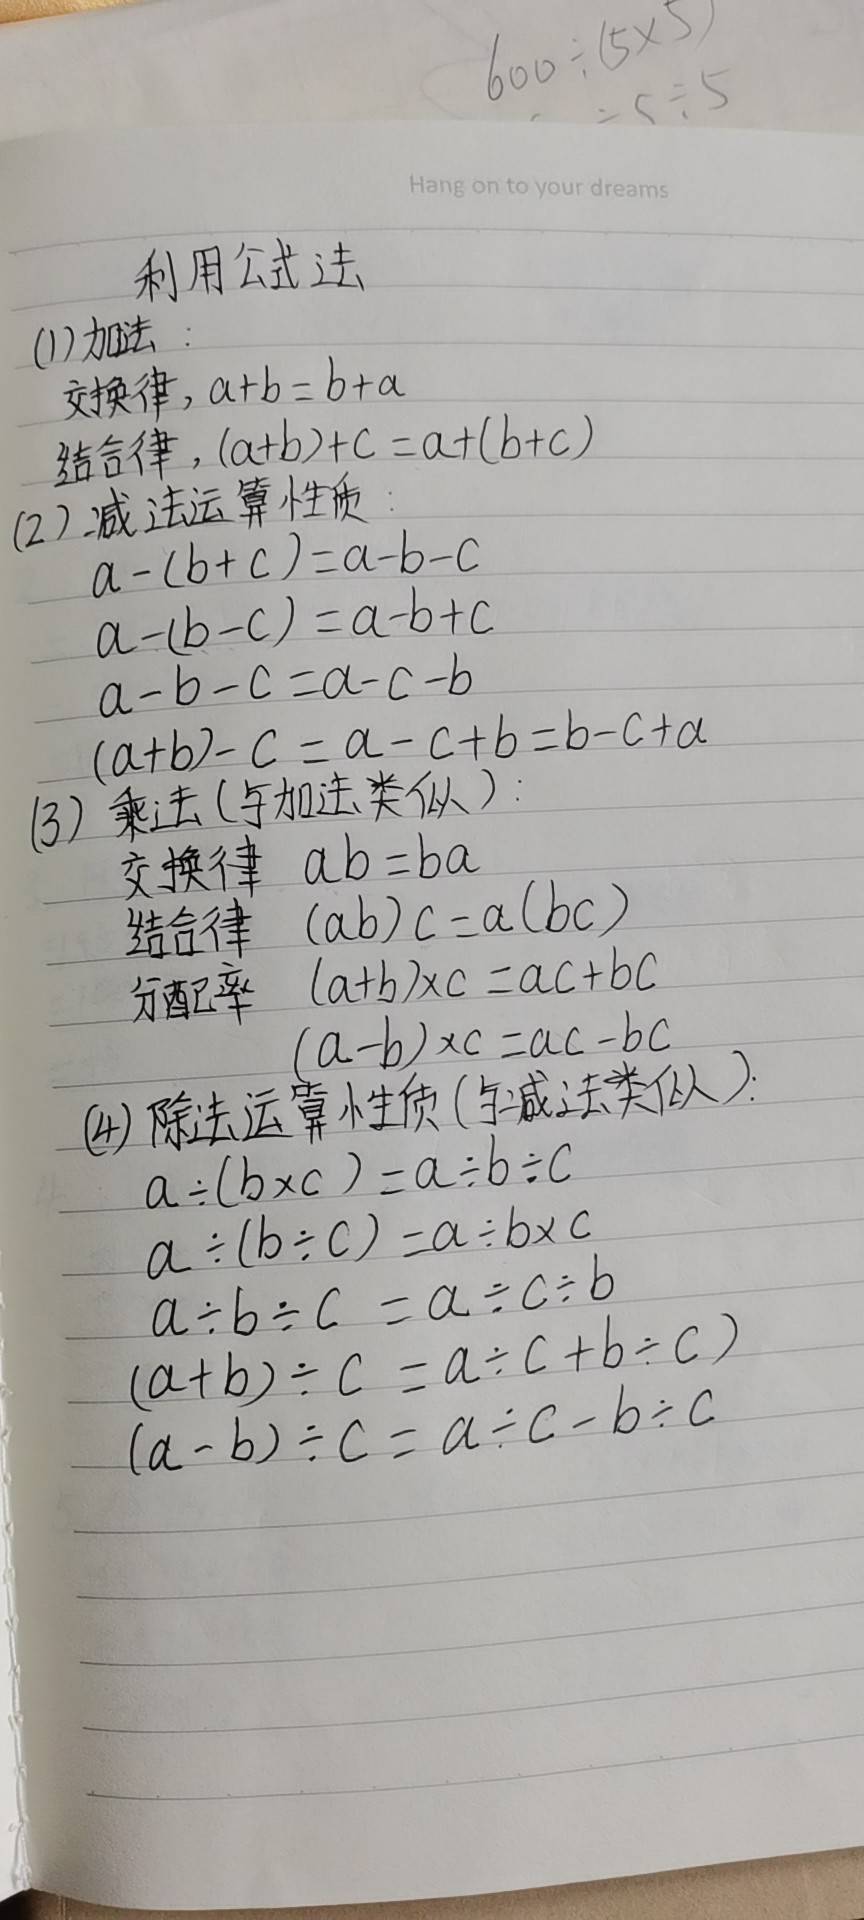 600÷(5×5)
÷5÷5
Hang on to your dreams
利用公式法
(1)加法:
交换律,a+b=b+a
结合律,(a+b)+c=a+(b+c)
(2)减法运算性质:
a-(b+c)=a-b-c
a-(b-c)=a-b+c
a-b-c=a-c-b
(a+b)-c=a-c+b=b-c+a
(3)乘法(与加法类似):
交换律 ab=ba
结合律 (ab)c=a(bc)
分配率 (a+b)×c=ac+bc
(a-b)×c=ac-bc
(4)除法运算性质(与减法类似):
a÷(b×c)=a÷b÷c
a÷(b÷c)=a÷b×c
a÷b÷c=a÷c÷b
(a+b)÷c=a÷c+b÷c)
(a-b)÷c=a÷c-b÷c